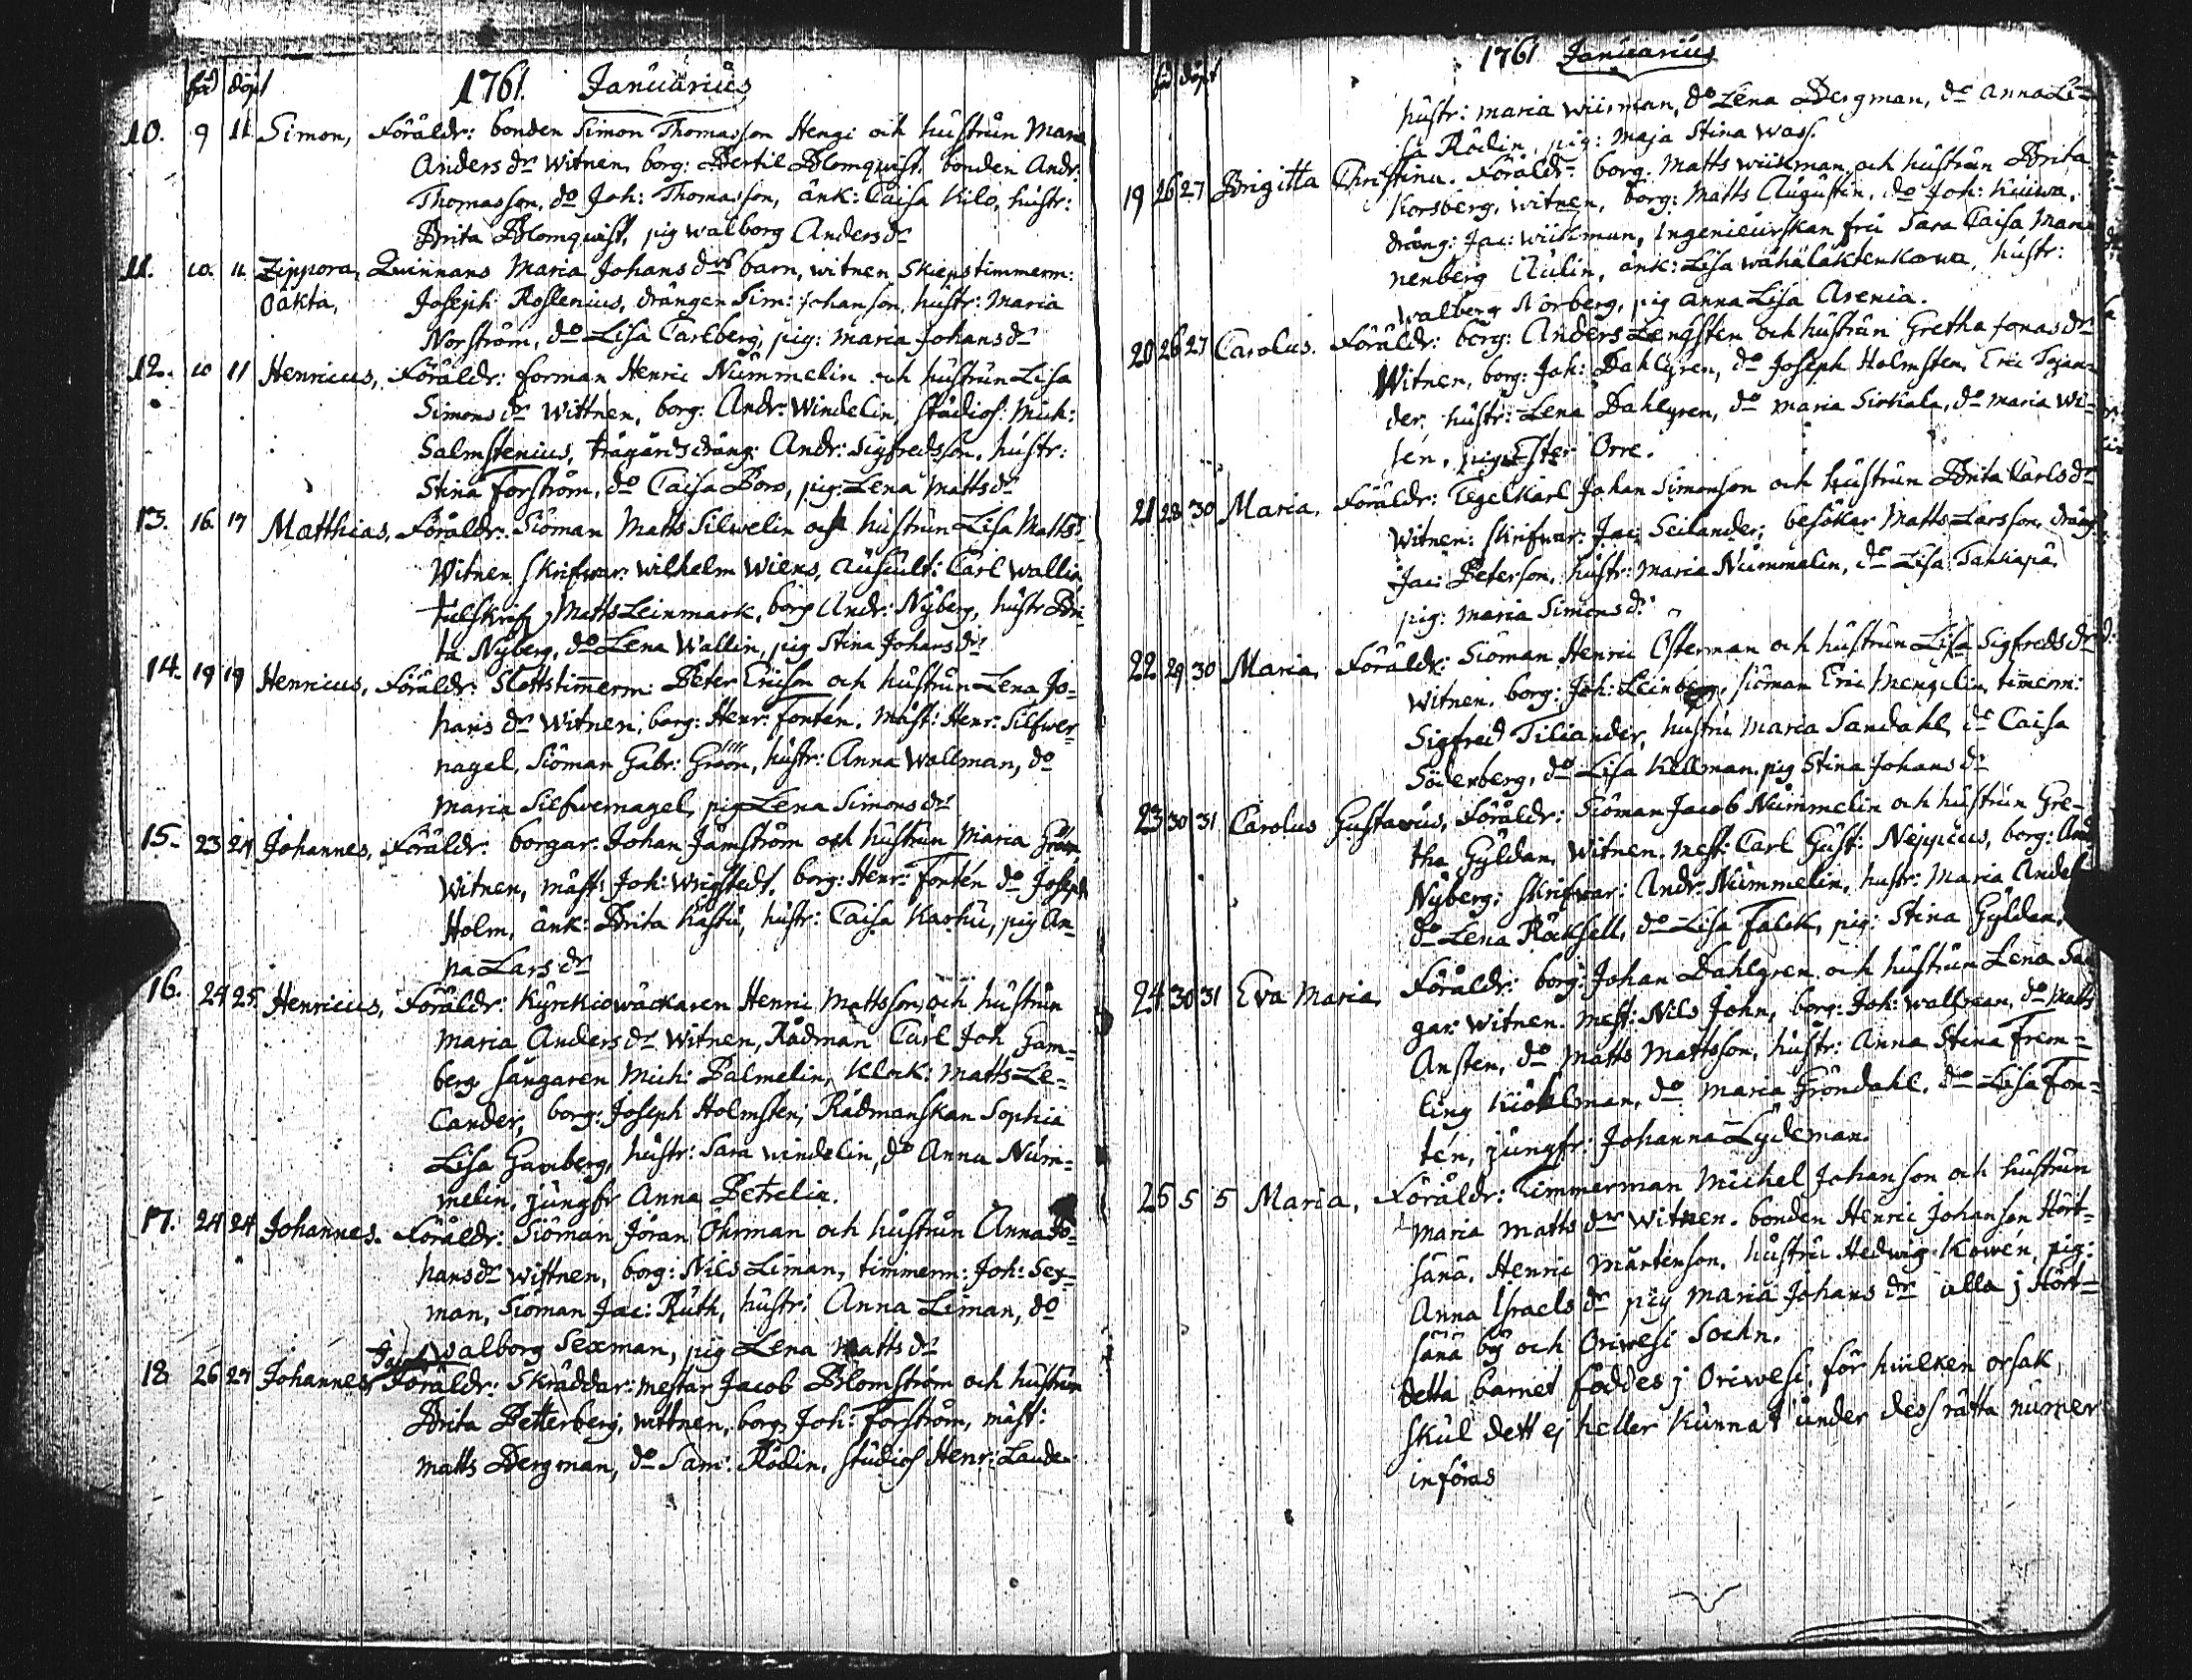 föd döpt 1761. Januarius
10. 9 11 Simon, Föräldr: bonden Simon Thomasson Hengi och hustrun Maria
Anders dr Witnen, borg: Bertil Blomquist, bonden Andr:
Thomasson, do Joh: Thomasson, änk: Caisa Kilo, hustr:
Brita Blomquist, pig Walborg Anders dr
11. 10. 11. Zippora, Quinnans Maria Johans drs barn, witnen Skiepstimmerm:
oäkta, Joseph Roslenius, drängen Sim: Johanson, hustr: Maria
Norström, do Lisa Carlberg, pig: Maria Johans dr
12. 10 11 Henricus, Föräldr: forman Henric Nummelin och hustrun Lisa
Simons dr Wittnen, borg: Andr: Windelin, Studios: Mich:
Salmstenius, trägårdsdräng: Andr: Sigfredsson, hustr:
Stina Forström, do Caisa Boro, pig: Lena Matts dr
13. 16. 17 Matthias, Föräldr: Siöman Matts Silwelin och hustrun Lisa Matts dr
Witnen Skrifwar: Wilhelm Wiens, auscult: Carl Wallia,
tulskrif, Matts Leinmark, borg Andr: Nyberg, hustr Bri-
ta Nyberg, do Lena Wallin, pig Stina Johans dr
14. 19 19 Henricus, Föräldr: Slottstimmerm: Peter Ericson och hustrun Lena Jo=
hans dr Witnen, borg: Henr: Fontén. mäst: Henr: Silfwer=
nagel, Siöman Gabr: Gröön, hustr: Anna Wallman, do
Maria Silfwernagel, pig Lena Simons dr
15. 23 24 Johannes, Föräldr: borgar: Johan Jämström och hustrun Maria
Witnen, mäst: Joh: Wrigstedt. borg: Henr: Fontén do Joseph
Holm, änk: Brita Kastu, hustr: Caisa Karhu, pig An=
na Lars dr
16. 24 25. Henricus, Föräldr: Kyrckiowäckaren Henric Mattsson och hustrun
Maria Anders dr Witnen, Rådman Carl Joh Gam=
berg sångaren Mich: Palmelin, Klock: Matts Le=
cander, borg: Joseph Holmsten, Rådmanskan Sophia
Lisa Gamberg, hustr: Sara Windelin, do Anna Num=
melin, jungfr Anna Petrelia.
17. 24 24 Johannes. Föräldr: Siöman Jöran Öhrman och hustrun Anna Jo=
hans dr Wittnen, borg: Nils Liman, timmerm: Joh: Sex=
man, Siöman Jac: Ruth, hustr: Anna Liman, do
Walborg Sexman, pig Lena Matts dr
18. 26 27 Johannes Föräldr: Skräddar: mestar Jacob Blomström och hustrun
Brita Petterberg, wittnen, borg. Joh: Forström, mäst:
Matts Bergman, do Sam: Rödin, studios Henr: Lauder
föd döpt 1761 Januarius
hustr: Maria Wiisman, do Lena Bergman, do Anna Li=
sa Rödin, pig: Maja Stina Wass.
19 26 27 Brigitta Christina. Föräldr: borg: Matts Wiikman och hustrun Brita
Korsberg, witnen, borg: Matts Augustin, do Joh: Kuiwa,
dräng: Jac: Wiikman, Ingenieurskan fru Sara Caisa Man=
nenberg Aulin, änk: Lisa Wähäläktenkorwa, hustr:
Walborg Norberg, pig Anna Lisa Arenia.
20 26 27 Carolus. Föräldr: borg: Anders Lengsten och hustrun Gretha Jonas dr
Witnen, borg: Joh: Dahlgren, do Joseph Holmsten, Eric Tojan=
der, hustr: Lena Dahlgren, do Maria Sirkala, do Maria Wi=
sén, pig: Ester Orre.
21 28 30 Maria, Föräldr: Tegelkarl Johan Simonson och hustrun Brita Karls dr
Witnen: skrifwar: Jac: Seilander, besökar Matts Larsson, dräng
Jac: Peterson, hustr: Maria Nummelin, do Lisa Takkapä,
pig: Maria Simons dr
22 29 30 Maria, Föräldr: Siöman Henric Österman och hustrun Lisa Sigfreds dr
witnen. borg: Joh: Leinberg, siöman Eric Mengelin, timerm:
Sigfred Tiliander, hustru Maria Sandahl, do Caisa
Söderberg, do Lisa Kellman, pig Stina Johans dr
23 30 31 Carolus Gustavus, Föräldr: Siöman Jacob Nummelin och hustrun Gre-
tha Gyldan, Witnen. mest: Carl Gust: Neppius, borg: And
Nyberg: skrifwar: Andr: Nummelin, hustr: Maria Andel
do Lena Räcksell, do Lisa Falck, pig: Stina Gyldan,
24 30 31 Eva Maria, Föräldr: borg: Johan Dahlgren och hustrun Lena Sa
gar: Witnen. mest: Nils John, borg: Joh: Wallman, do Matts
Ansten, do Matts Mattsson, hustr: Anna Stina Frem=
ling Kiöhlman, do Maria Gröndahl, do Lisa Fon=
tén, jungfr: Johanna Lydeman.
25 5 5 Maria, Föräldr: Timmerman Michel Johanson och hustrun
Maria Matts dr Witnen. bonden Henric Johanson Hört=
sänä, Henric Mårtenson, hustru Hedwig Kowén, pig:
Anna Israels dr pig Maria Johans dr alla j Hört=
sänä by och Oriwesi Sochn.
detta barnet föddes j Oriwesi, för hvilken orsak
skul dett ej heller kunnat under dess rätta numer
införas